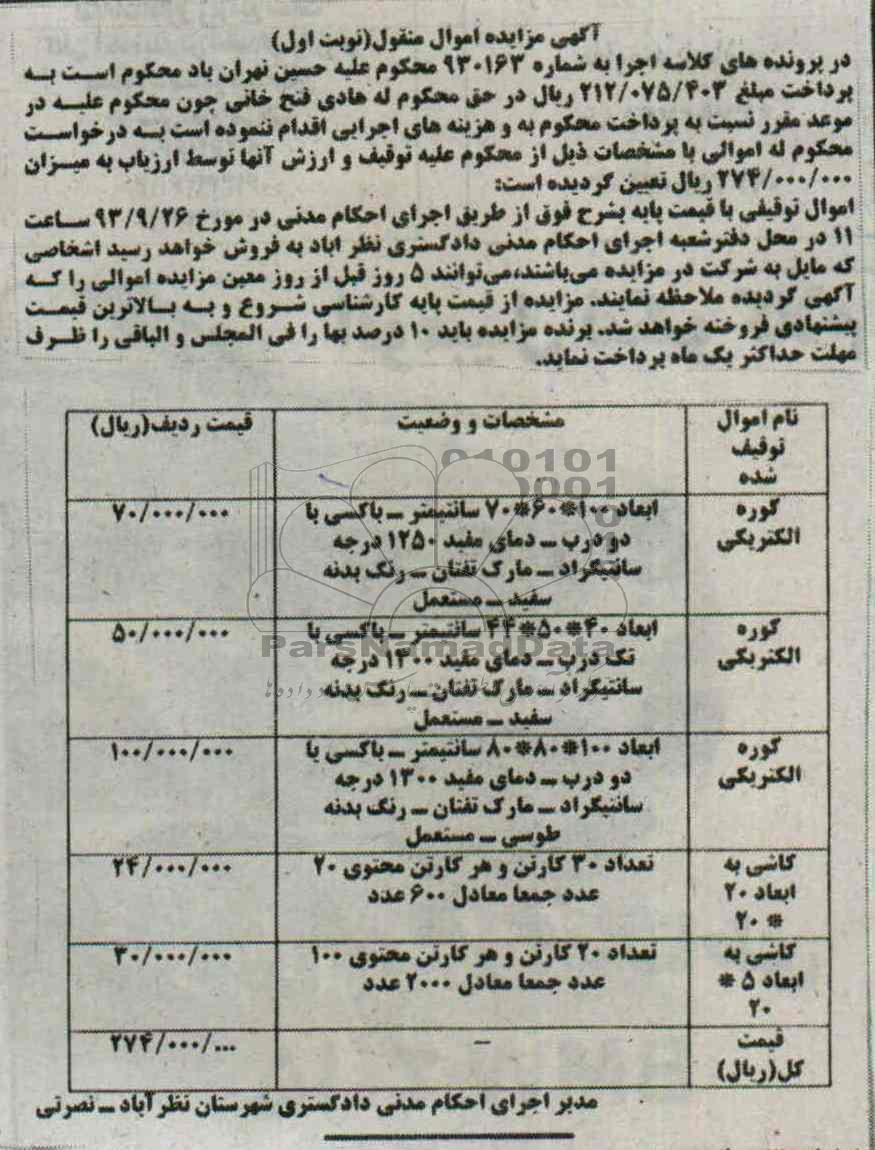 آگهی مزایده اموال منقول(نوبت اول)
در پرونده های کلاسه اجرا به شماره ۹۳۰۱۶۳ محکوم علیه حسین تهران باد محکوم است به
پرداخت مبلغ ۲۱۲/۰۷۵/۴۰۳ ریال در حق محکوم له هادی فتح خانی چون محکوم علیه در
موعد مقرر نسبت به پرداخت محکوم به و هزینه های اجرایی اقدام ننموده است به درخواست
محکوم له اموالی با مشخصات ذیل از محکوم علیه توقیف و ارزش آنها توسط ارزیاب به میزان
۲۷۴/۰۰۰/۰۰۰ ریال تعیین گردیده است:
اموال توقیفی با قیمت پایه بشرح فوق از طریق اجرای احکام مدنی در مورخ ۹۳/۹/۲۶ ساعت
۱۱ در محل دفترشعبه اجرای احکام مدنی دادگستری نظر اباد به فروش خواهد رسید اشخاصی
که مایل به شرکت در مزایده می‌باشند،می‌توانند ۵ روز قبل از روز معین مزایده اموالی را که
آگهی گردیده ملاحظه نمایند. مزایده از قیمت پایه کارشناسی شروع و به بالاترین قیمت
پیشنهادی فروخته خواهد شد. برنده مزایده باید ۱۰ درصد بها را فی المجلس و الباقی را ظرف
مهلت حداکثر یک ماه پرداخت نماید.
نام اموال توقیف شده
مشخصات و وضعیت
قیمت ردیف(ریال)
کوره الکتریکی
ابعاد ۱۰۰*۶۰*۷۰ سانتیمتر ــ باکسی با
دو درب ــ دمای مفید ۱۲۵۰ درجه
سانتیگراد ــ مارک تفتان ــ رنگ بدنه
سفید ــ مستعمل
۷۰/۰۰۰/۰۰۰
کوره الکتریکی
ابعاد ۴۰*۵۰*۴۴ سانتیمتر ــ باکسی با
تک درب ــ دمای مفید ۱۳۰۰ درجه
سانتیگراد ــ مارک تفتان ــ رنگ بدنه
سفید ــ مستعمل
۵۰/۰۰۰/۰۰۰
کوره الکتریکی
ابعاد ۱۰۰*۸۰*۸۰ سانتیمتر ــ باکسی با
دو درب ــ دمای مفید ۱۳۰۰ درجه
سانتیگراد ــ مارک تفتان ــ رنگ بدنه
طوسی ــ مستعمل
۱۰۰/۰۰۰/۰۰۰
کاشی به ابعاد ۲۰ * ۲۰
تعداد ۳۰ کارتن و هر کارتن محتوی ۲۰
عدد جمعا معادل ۶۰۰ عدد
۲۴/۰۰۰/۰۰۰
کاشی به ابعاد ۵ * ۲۰
تعداد ۲۰ کارتن و هر کارتن محتوی ۱۰۰
عدد جمعا معادل ۲۰۰۰ عدد
۳۰/۰۰۰/۰۰۰
قیمت کل(ریال)
–
۲۷۴/۰۰۰/...
مدیر اجرای احکام مدنی دادگستری شهرستان نظرآباد ــ نصرتی
ParsNamadData